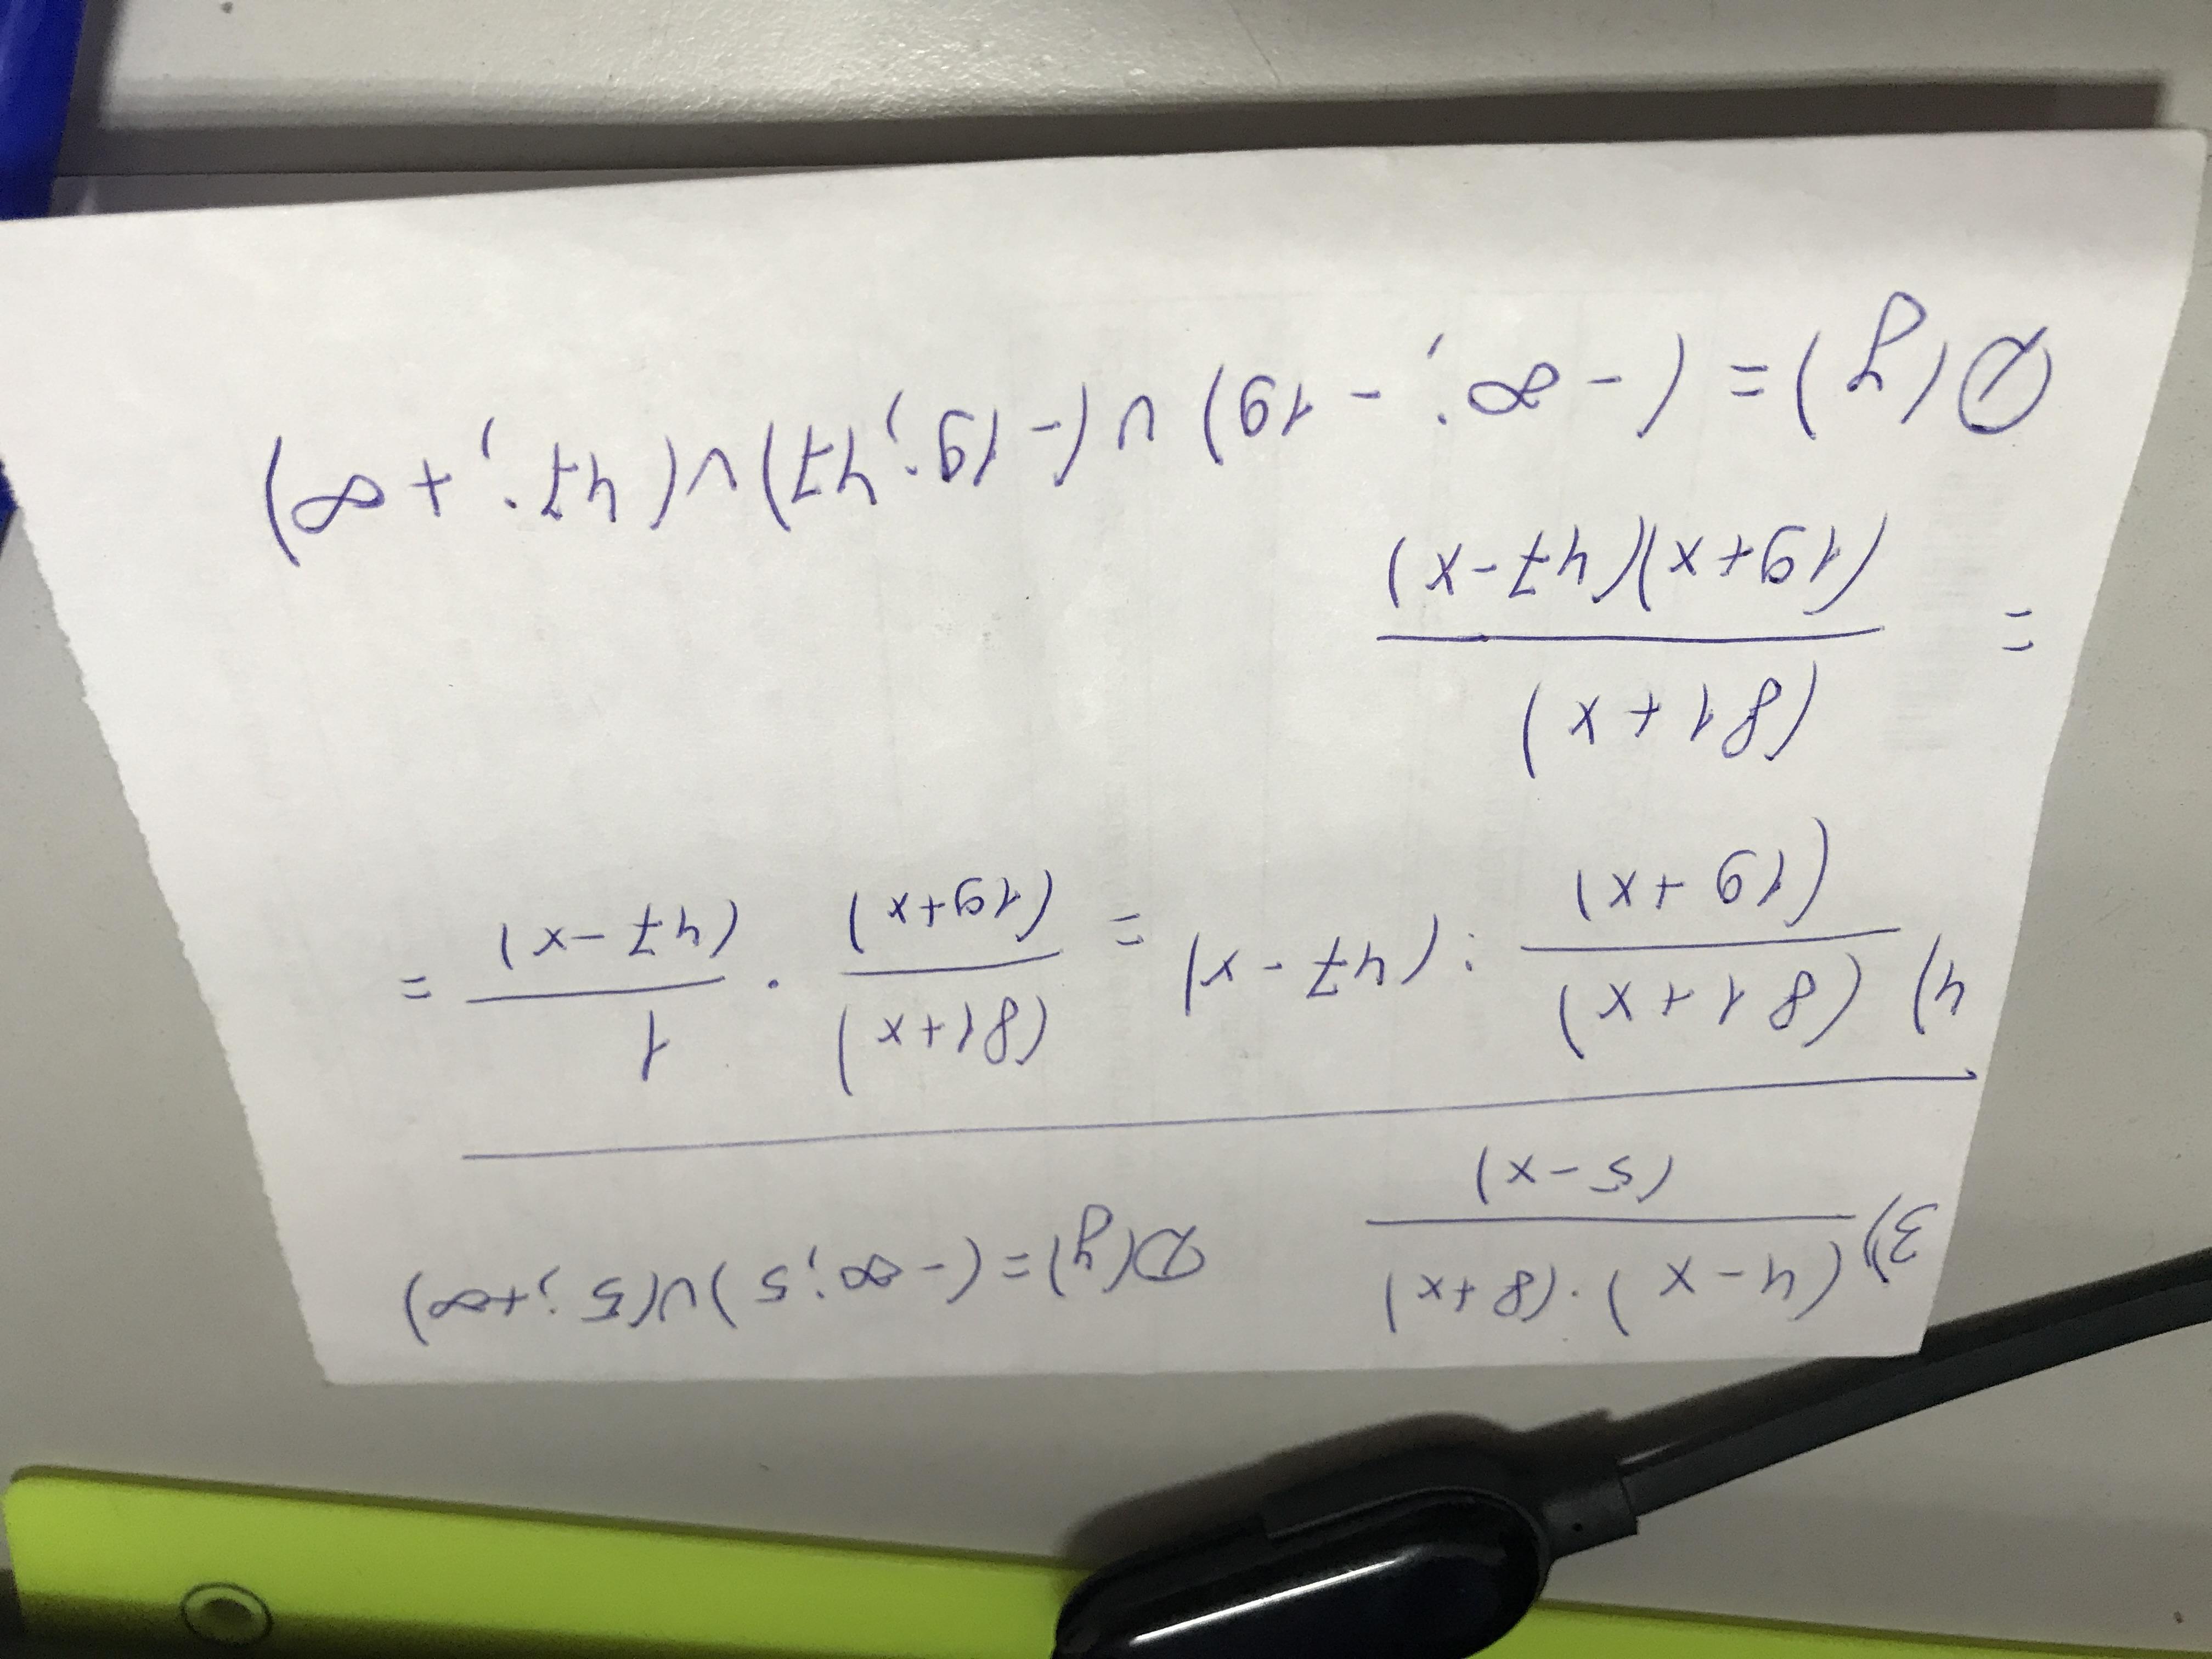 3) (4-x)·(8+x) / (5-x) D(y)=(-∞;5)∪(5;+∞)
4) (81+x) / (19+x) : (47-x) = (81+x) / (19+x) · 1 / (47-x) =
= (81+x) / (19+x)(47-x)
D(y)=(-∞;-19)∪(-19;47)∪(47;+∞)